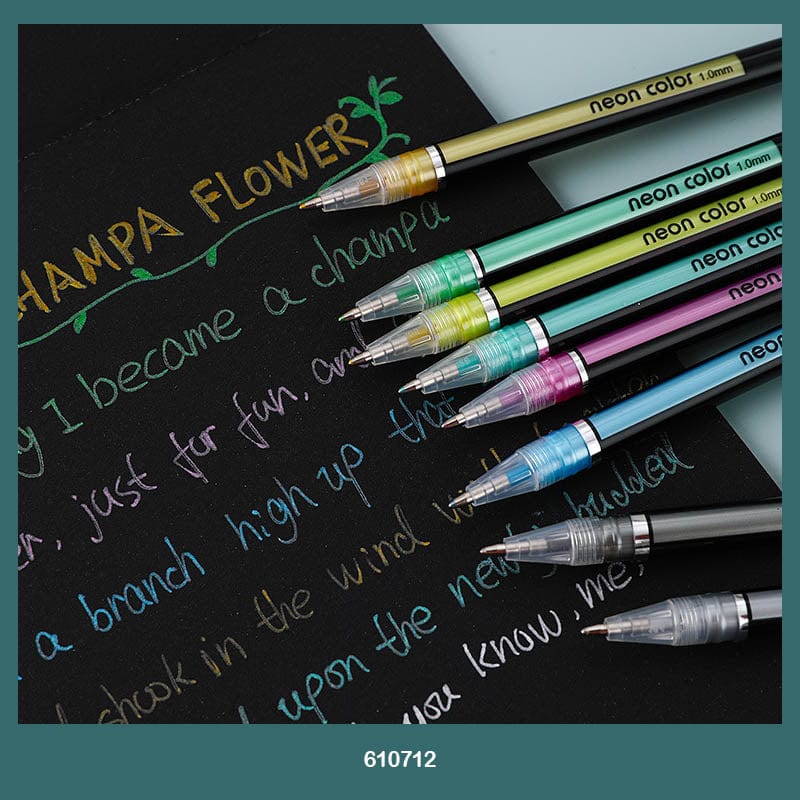 HAMPA FLOWER
I became a champa
just for fun, and
a branch high up that
shook in the wind with
upon the new budded
you know, me,
neon color 1.0mm
neon color 1.0mm
neon color 1.0mm
neon colo
neon
neon
610712